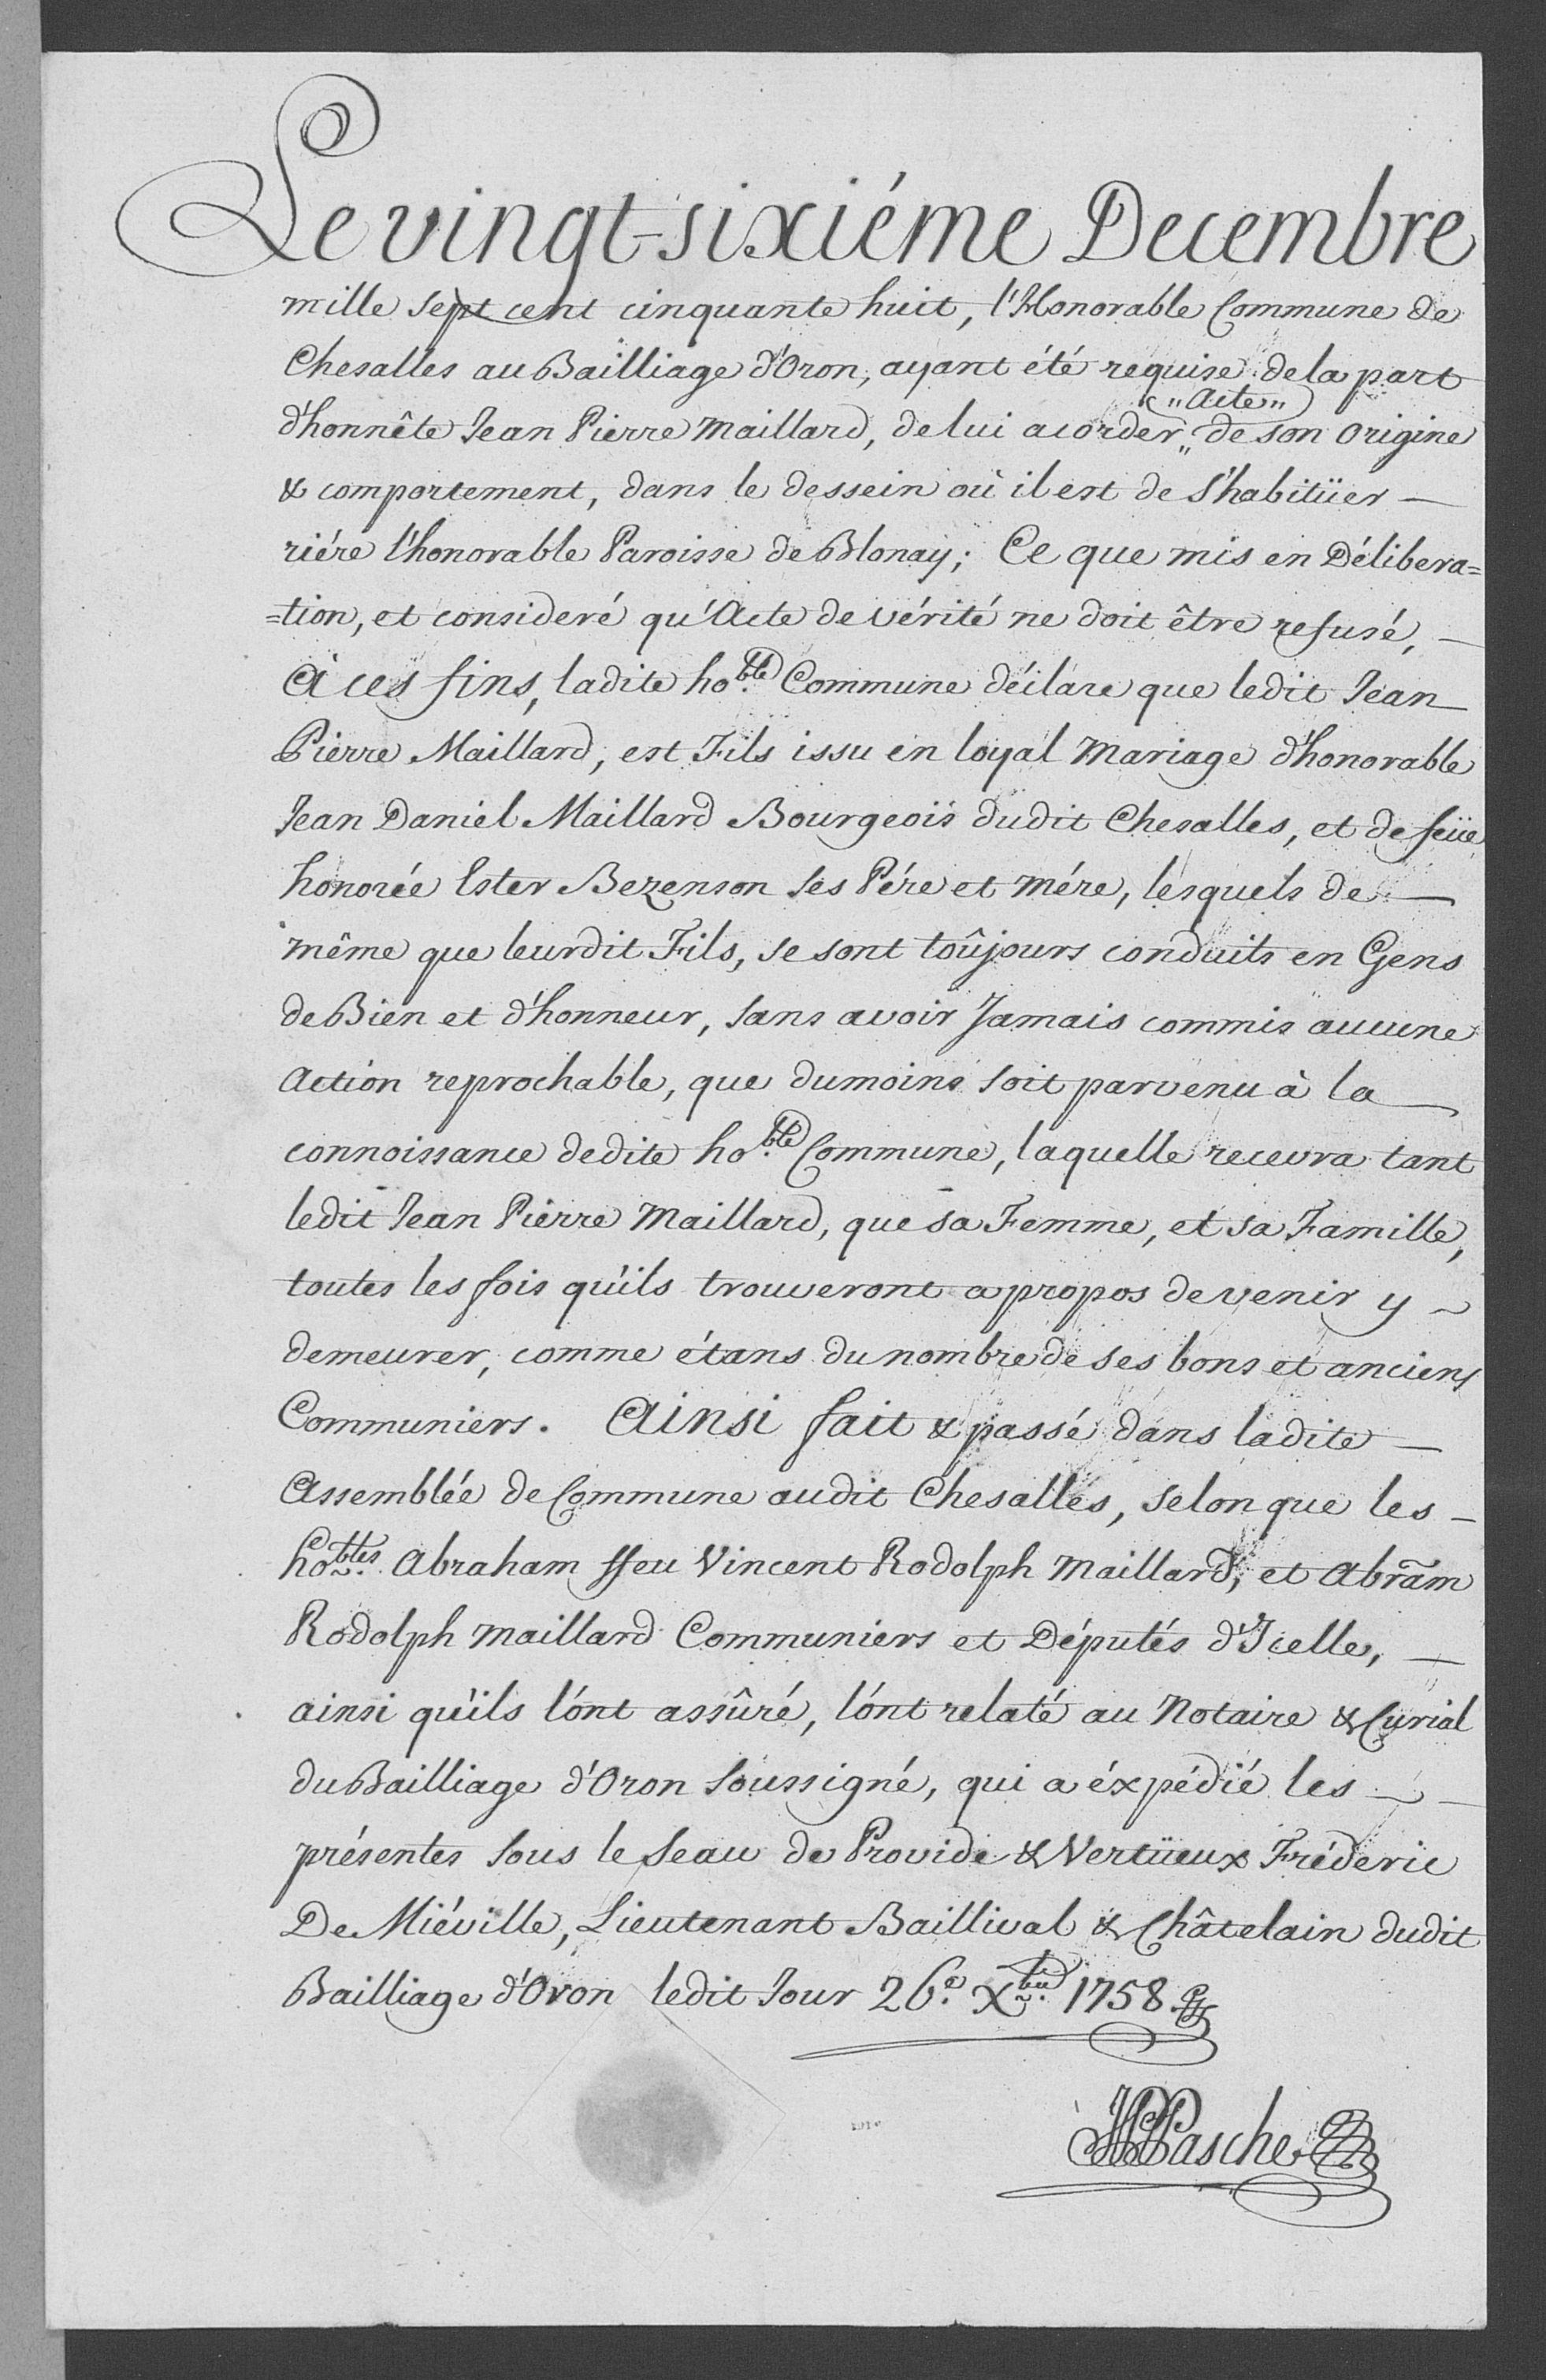 Le vingt-sixiéme Decembre
mille sept cent cinquante huit, l'Honorable Commune de
Chesalles au Bailliage d'Oron, ayant été requise de la part
"Acte"
d'honnête Jean Pierre Maillard, de lui acorder " de son origine
& comportement, dans le dessein où il est de s'habitüer —
riére l'honorable Paroisse de Blonay; Ce que mis en Délibera=
=tion, et consideré qu'Acte de vérité ne doit être refusé, —
à ces fins, ladite ho.ble Commune déclare que ledit Jean
Pierre Maillard, est Fils issu en loyal Mariage d'honorable
Jean Daniel Maillard Bourgeois dudit Chesalles, et de feüe
honorée Ester Bezenson ses Pére et mére, lesquels de —
même que leurdit Fils, se sont toûjours conduits en Gens
de Bien et d'honneur, sans avoir Jamais commis aucune
Action reprochable, que dumoins soit parvenu à la
connoissance dedite ho.ble Commune, laquelle recevra tant
ledit Jean Pierre Maillard, que sa Femme, et sa Famille,
toutes les fois qu'ils trouveront apropos de venir y ~
demeurer, comme étans du nombre de ses bons et anciens
Communiers. Ainsi fait & passé dans ladite —
Assemblée de Commune audit Chesalles, selon que les —
ho.bles Abraham ffeu Vincent Rodolph Maillard, et Abrãm
Rodolph Maillard Communiers et Députés d'Icelle, —
ainsi qu'ils l'ont assûré, l'ont relaté au Notaire & Curial
du Bailliage d'Oron soussigné, qui a éxpédié les ~ —
présentes sous le seau de Provide & Vertüeux Fréderic
De Miéville, Lieutenant Baillival & Châtelain dudit
Bailliage d'Oron ledit Jour 26.e X.bre 1758.
Pasche